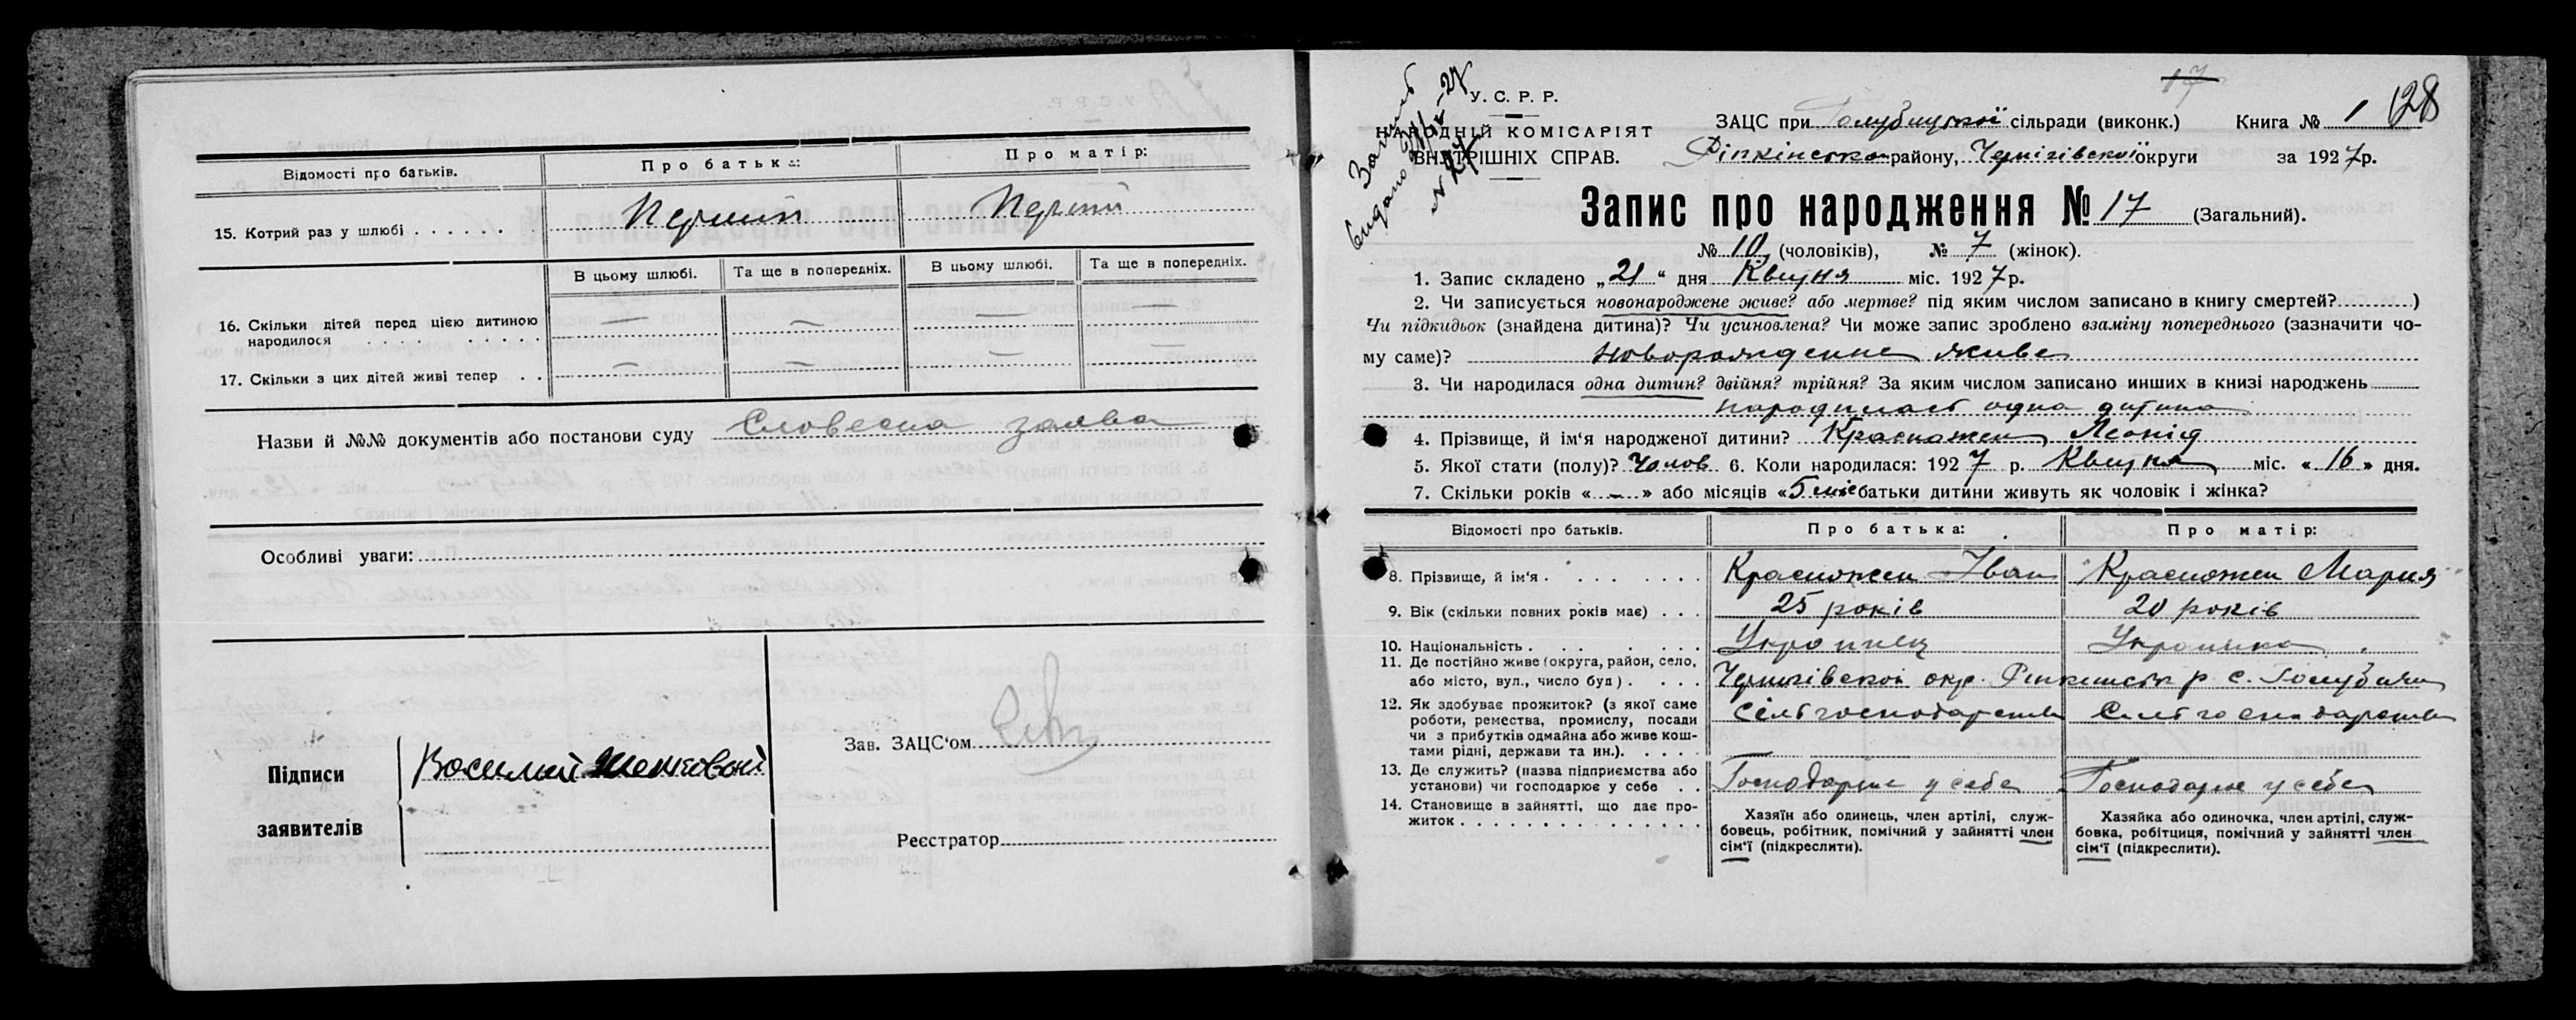 Відомості про батьків.
Про батька:
Про матір:
15. Котрий раз у шлюбі . . . . . .
Перший
Перший
В цьому шлюбі.
Та ще в попередніх.
В цьому шлюбі.
Та ще в попередніх.
16. Скільки дітей перед цією дитиною
народилося . . . . . . . . .
— — — —
17. Скільки з цих дітей живі тепер . .
— — — —
Назви й №№ документів або постанови суду Словесна заява
Особливі уваги:
Підписи
заявителів
Василий
Зав. ЗАЦС‘ом
Реєстратор
17
128
У. С. Р. Р.
НАРОДНІЙ КОМІСАРІЯТ
ВНУТРІШНІХ СПРАВ.
ЗАЦС при сільради (виконк.) Книга № 1
Ріпкінсько району, Чернігівської округи за 1927 р.
Запис про народження № 17 (Загальний).
№ 10 (чоловіків), № 7 (жінок).
1. Запис складено „21“ дня Квітня міс. 1927 р.
2. Чи записується новонароджене живе? або мертве? під яким числом записано в книгу смертей? )
Чи підкидьок (знайдена дитина)? Чи усиновлена? Чи може запис зроблено взаміну попереднього (зазначити чо-
му саме)? живе
3. Чи народилася одна дитин? двійня? трійня? За яким числом записано инших в книзі народжень
народилась одна дитина
4. Прізвище, й ім‘я народженої дитини? Красножен Леонід
5. Якої стати (полу)? Чолов 6. Коли народилася: 1927 р. Квітня міс. « 16 » дня.
7. Скільки років « — » або місяців « 5 міс батьки дитини живуть як чоловік і жінка?
Відомості про батьків.
Про батька:
Про матір:
8. Прізвище, й ім‘я . . . . . . . .
Красножен Іван
Красножен Мария
9. Вік (скільки повних років має) . . .
25 років
20 років
10. Національність . . . . . . . .
Українка
11. Де постійно живе (округа, район, село,
або місто, вул., число буд) . . . .
Чернігівской окр. р с.
12. Як здобуває прожиток? (з якої саме
роботи, ремества, промислу, посади
чи з прибутків одмайна або живе кош-
тами рідні, держави та ин.). . . . .
13. Де служить? (назва підприємства або
установи) чи господарює у себе . .
Господарює у себе
Господарює у себе
14. Становище в зайнятті, що дає про-
житок . . . . . . . . . . . . . . .
Хазяїн або одинець, член артілі, служ-
бовець, робітник, помічний у зайнятті член
сім‘ї (підкреслити).
Хазяйка або одиночка, член артілі, служ-
бовка, робітниця, помічний у зайнятті член
сім‘ї (підкреслити).